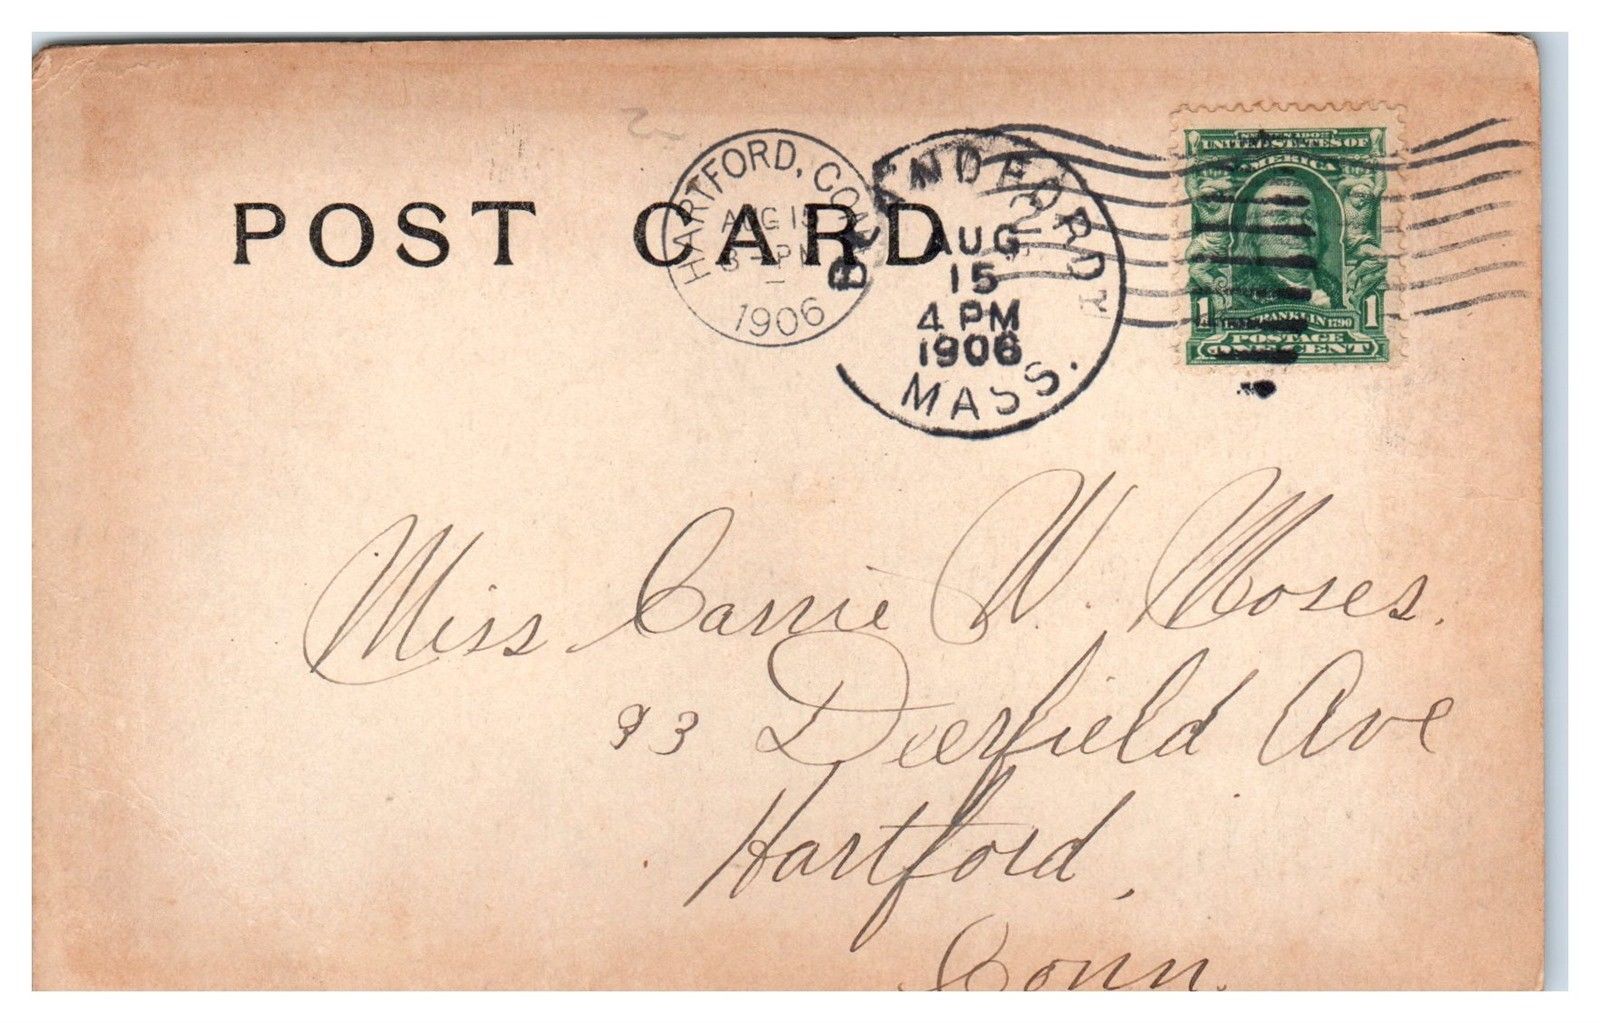 POST CARD
HARTFORD, CONN.
AUG 15
8 - PM
1906
BLANDFORD
AUG
15
4 PM
1906
MASS.
SERIES 1902
UNITED STATES OF
AMERICA
1 FRANKLIN 1790 1
POSTAGE
ONE CENT
Miss Carrie W. Moses.
93 Deerfield Ave
Hartford,
Conn.